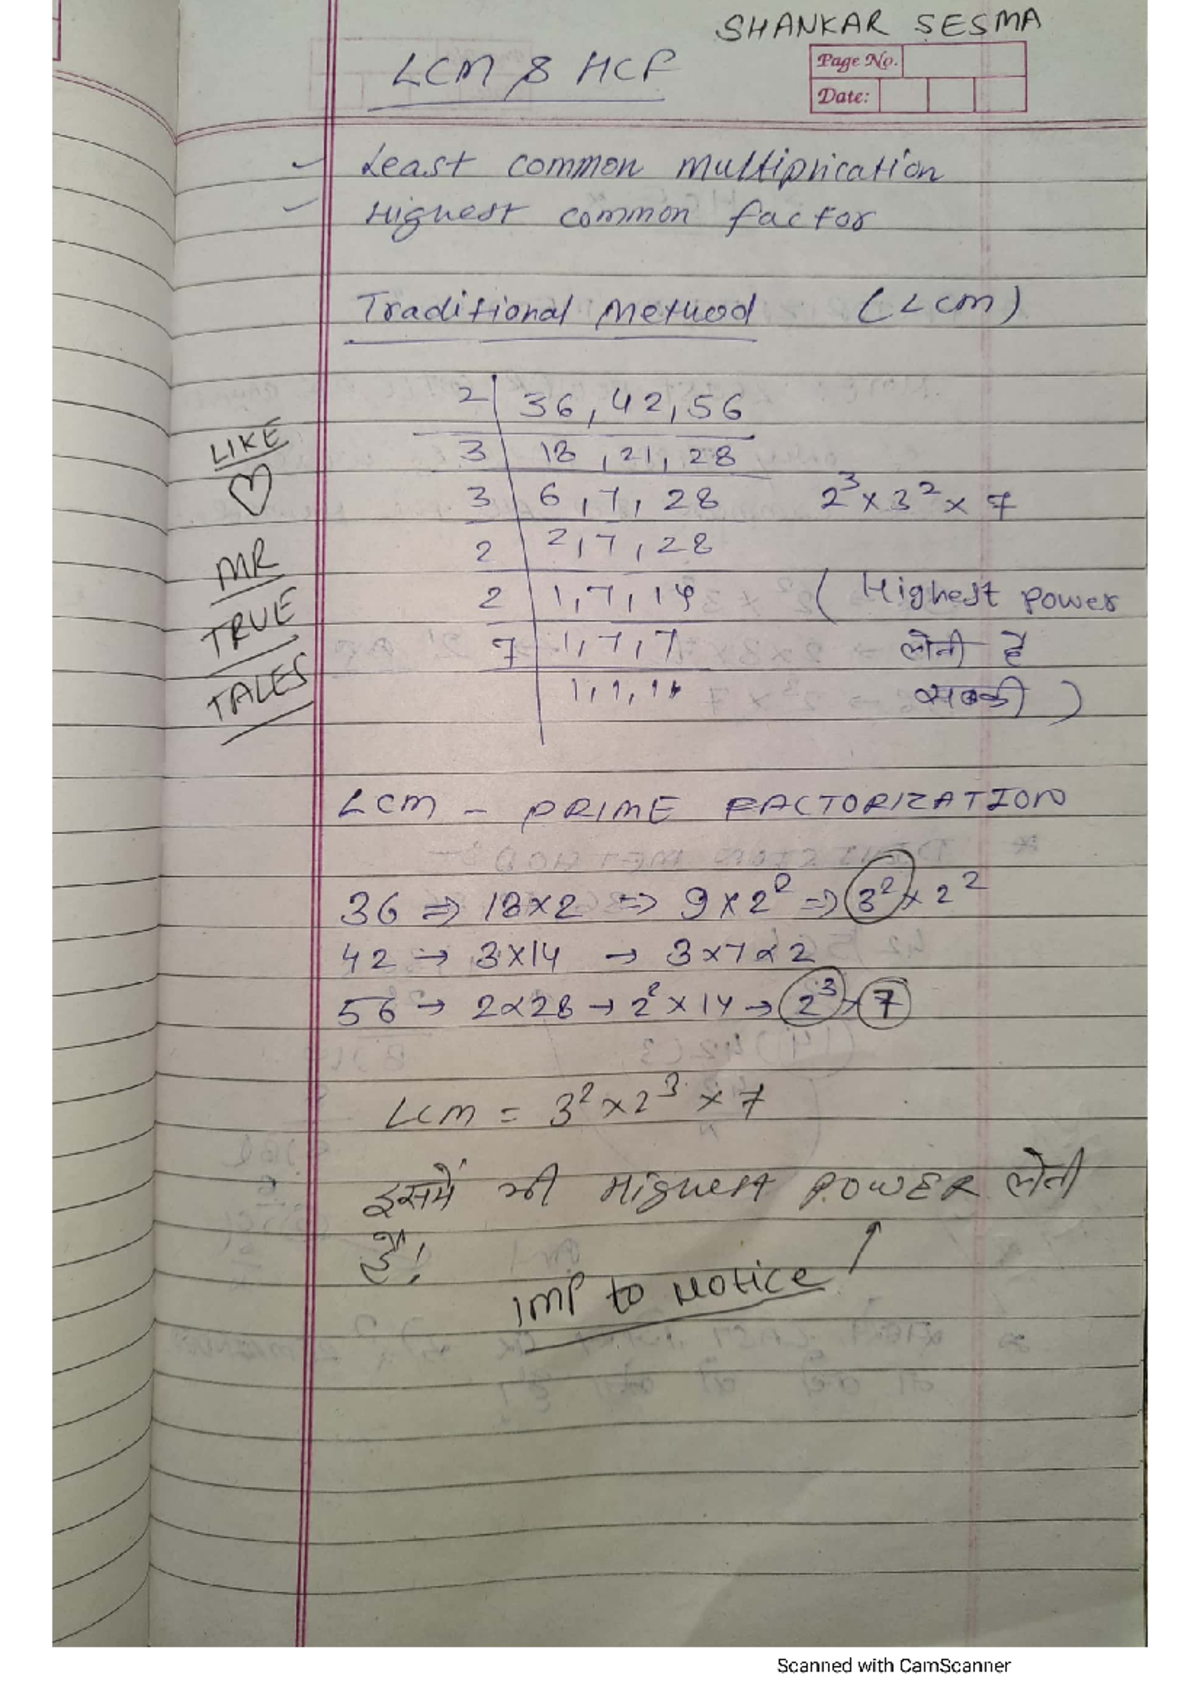 SHANKAR SESMA
Page No.
Date:
LCM & HCF
Least common multiplication
Highest common factor
Traditional Method (LCM)
2 | 36, 42, 56
3 | 18, 21, 28
3 | 6, 7, 28 2³ × 3² × 7
2 | 2, 7, 28
2 | 1, 7, 14 ( Highest Power
7 | 1, 7, 7 लेनी है
1, 1, 1 सबकी )
LIKE
♡
MR
TRUE
TALES
LCM - PRIME FACTORIZATION
36 ⇒ 18×2 ⇒ 9×2² ⇒ 3² × 2²
42 → 3×14 → 3×7×2
56 → 2×28 → 2² × 14 → 2³ × 7
LCM = 3² × 2³ × 7
इसमें भी Highest POWER लेनी
है!
IMP to Notice
Scanned with CamScanner